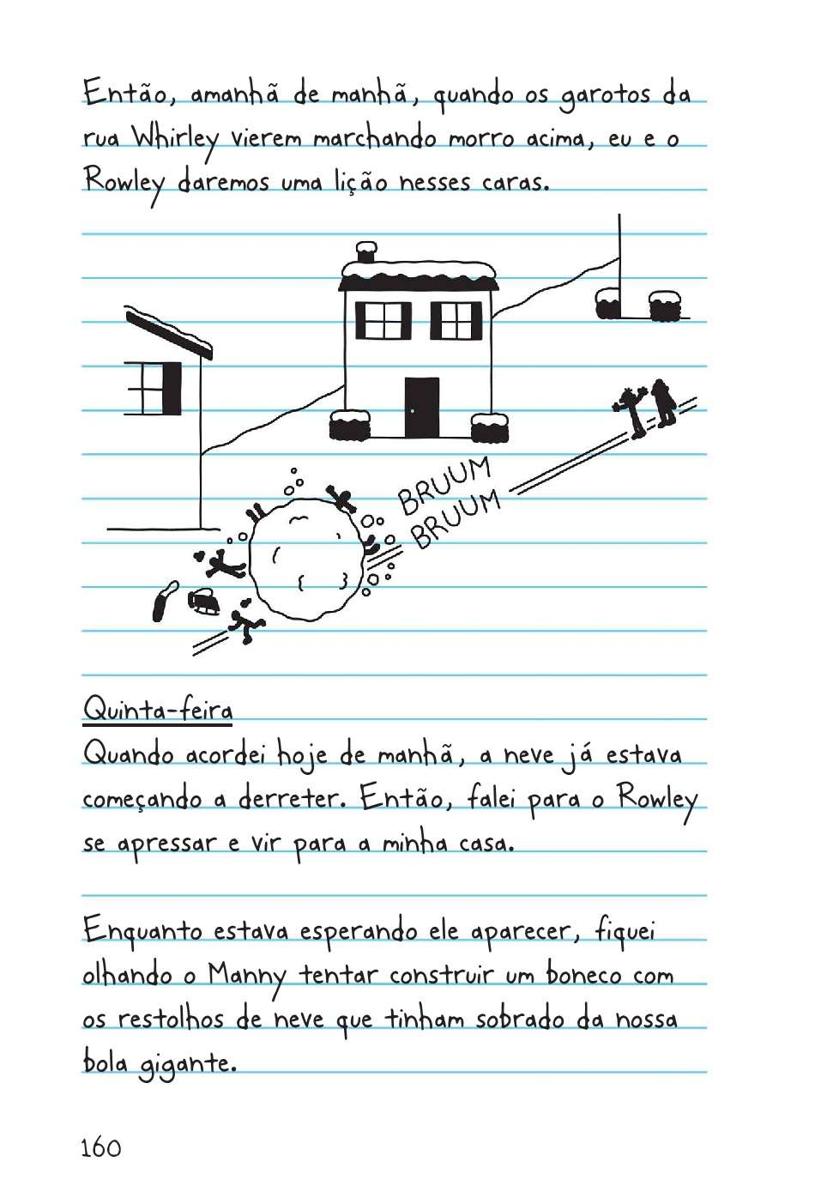 Então, amanhã de manhã, quando os garotos da
rua Whirley vierem marchando morro acima, eu e o
Rowley daremos uma lição nesses caras.
BRUUM
BRUUM
Quinta-feira
Quando acordei hoje de manhã, a neve já estava
começando a derreter. Então, falei para o Rowley
se apressar e vir para a minha casa.
Enquanto estava esperando ele aparecer, fiquei
olhando o Manny tentar construir um boneco com
os restolhos de neve que tinham sobrado da nossa
bola gigante.
160